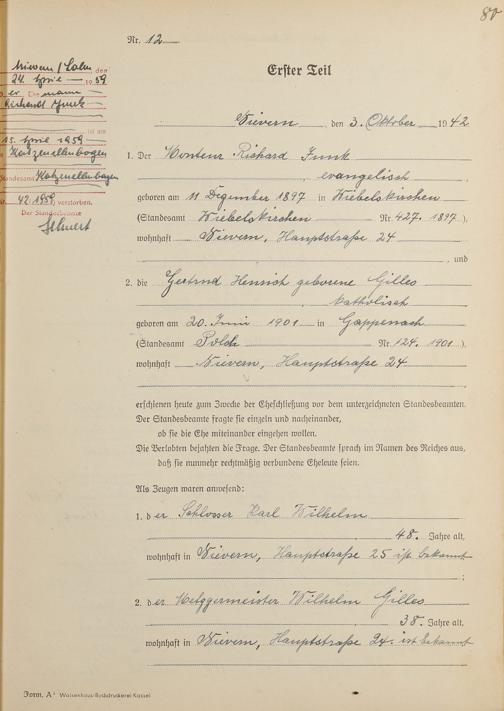 80
Nr. 12
Erster Teil
Nievern, den 3. Oktober 1942
1. Der Monteur Richard Funk
evangelisch
geboren am 11 Dezember 1897 in Wiebelskirchen
(Standesamt Wiebelskirchen Nr. 427. 1897 ).
wohnhaft Nievern, Hauptstraße 24
, und
2. die Gertrud Heinrich geborene Gilles
katholisch
geboren am 20. Juni 1901 in Gappenach
(Standesamt Polch Nr. 124. 1901 ).
wohnhaft Nievern, Hauptstraße 24
erschienen heute zum Zwecke der Eheschließung vor dem unterzeichneten Standesbeamten.
Der Standesbeamte fragte sie einzeln und nacheinander,
ob sie die Ehe miteinander eingehen wollen.
Die Verlobten bejahten die Frage. Der Standesbeamte sprach im Namen des Reiches aus,
daß sie nunmehr rechtmäßig verbundene Eheleute seien.
Als Zeugen waren anwesend:
1. der Schlosser Karl Wilhelm
48. Jahre alt,
wohnhaft in Nievern, Hauptstraße 25 ist bekannt
;
2. der Metzgermeister Wilhelm Gilles
38. Jahre alt,
wohnhaft in Nievern, Hauptstraße 24. ist bekannt
Nievern/Lahn den
24. April 1959
er Ehemann
Richard Funk
ist am
15. April 1959
Katzenelnbogen
Standesamt Katzenelnbogen
42/1959 verstorben.
Der Standesbeamte
Form. A¹ Waisenhaus-Buchdruckerei Kassel